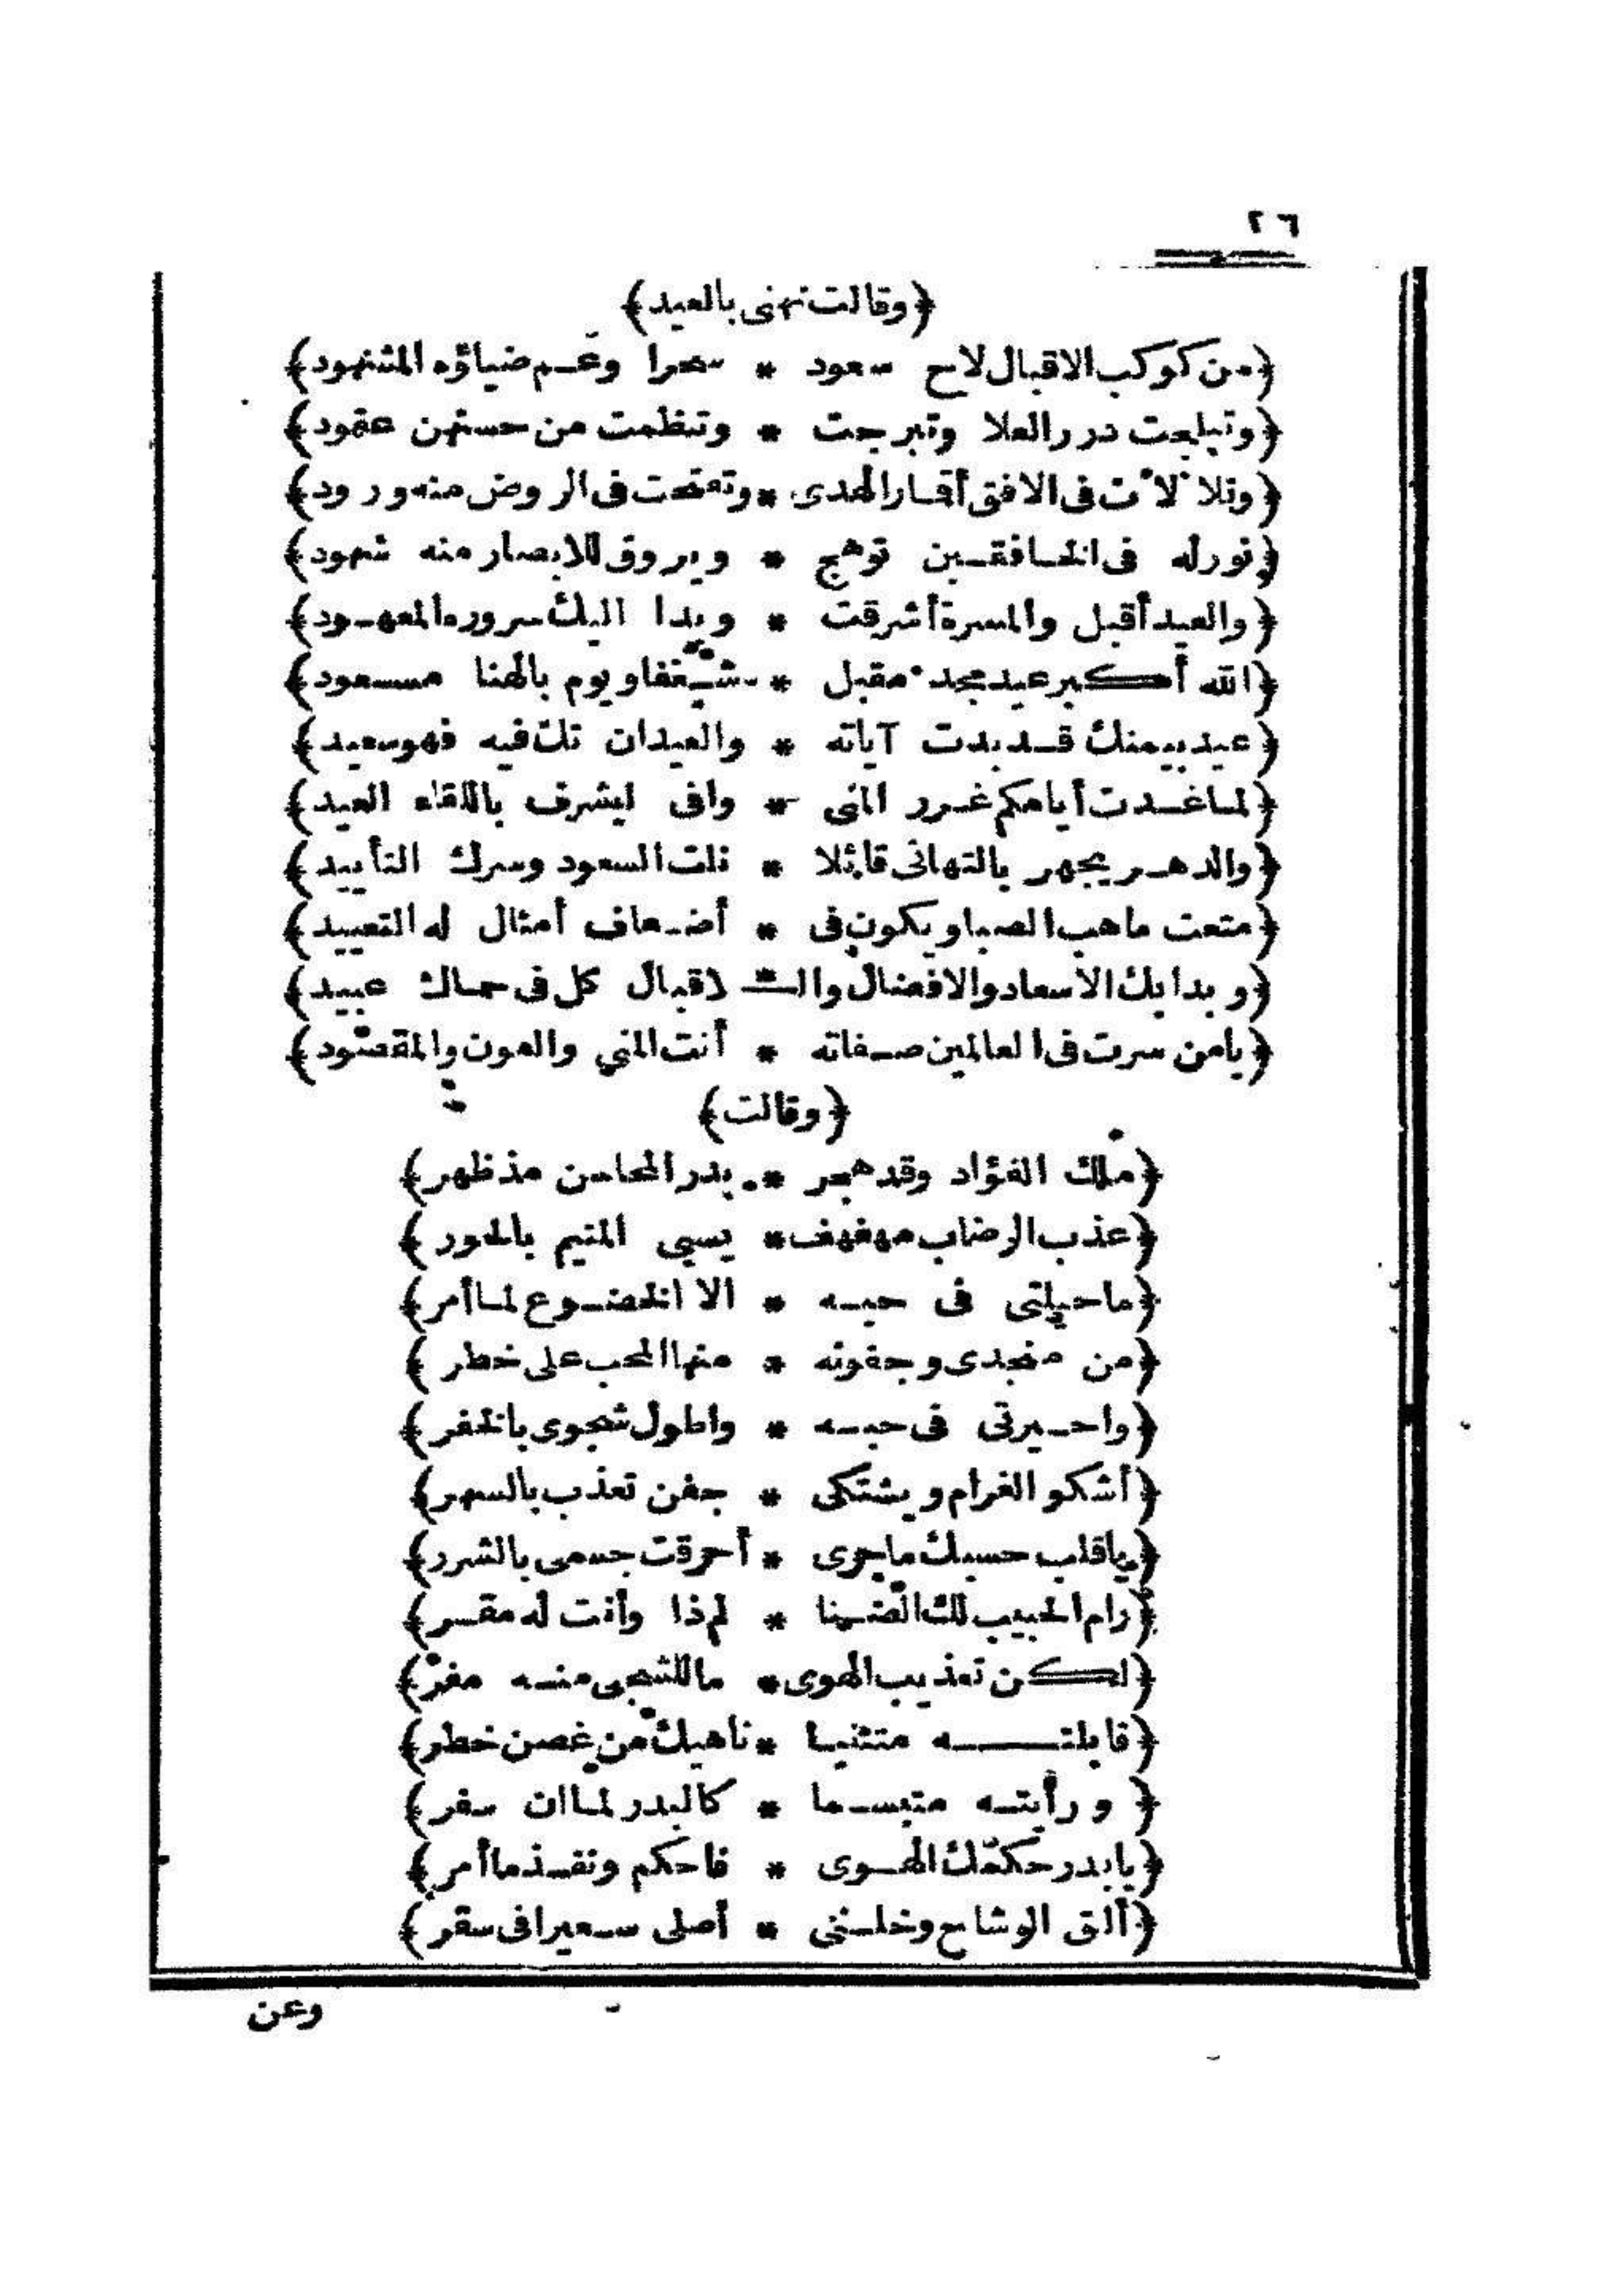 ٢٦
﴿وقالت تهنى بالعيد﴾
﴿من كوكب الاقبال لاح سعود * سحرا وعم ضياؤه المشهود﴾
﴿وتبلجت درر العلا وتبرجت * وتنظمت من حسنهن عقود﴾
﴿وتلالأت فى الافق أقمار الهدى * وتفتحت فى الروض منه ورود﴾
﴿نور له فى الخافقين توهج * ويروق للابصار منه شهود﴾
﴿والعيد أقبل والمسرة أشرقت * وبدا اليك سروره المعهود﴾
﴿الله أكبر عيد مجدك مقبل * شغفا ويوم بالهنا مسعود﴾
﴿عيد بيمنك قد بدت آياته * والعيدان تك فيه فهو سعيد﴾
﴿لما غدت أيامكم غرر المنى * وافى ليشرف باللقاء العيد﴾
﴿والدهر يجهر بالتهانى قائلا * نلت السعود وسرك التأييد﴾
﴿متعت ما هب الصبا ويكون فى * أضعاف أمثال له التعييد﴾
﴿وبدا بك الاسعاد والافضال وال * لاقبال كل فى حماك عبيد﴾
﴿يا من سرت فى العالمين صفاته * أنت المنى والعون والمقصود﴾
﴿وقالت﴾
﴿ملك الفؤاد وقد هجر * بدر المحاسن مذ ظهر﴾
﴿عذب الرضاب مهفهف * يسبي المتيم بالحور﴾
﴿ما حيلتى فى حبه * الا الخضوع لما أمر﴾
﴿من منجدى وجفونه * منها المحب على خطر﴾
﴿واحيرتى فى حبه * واطول شجوى بالخفر﴾
﴿أشكو الغرام ويشتكى * جفن تعذب بالسهر﴾
﴿يا قلب حسبك ما جرى * أحرقت جسمى بالشرر﴾
﴿رام الحبيب لك الضنا * لم ذا وأنت له مقر﴾
﴿لكن تعذيب الهوى * ما للشجى منه مفر﴾
﴿قابلته متثنيا * ناهيك من غصن خطر﴾
﴿ورأيته متبسما * كالبدر لما ان سفر﴾
﴿يا بدر حكمك الهوى * فاحكم ونفذ ما أمر﴾
﴿ألق الوشاح وخلنى * أصلى سعيرا فى سقر﴾
وعن